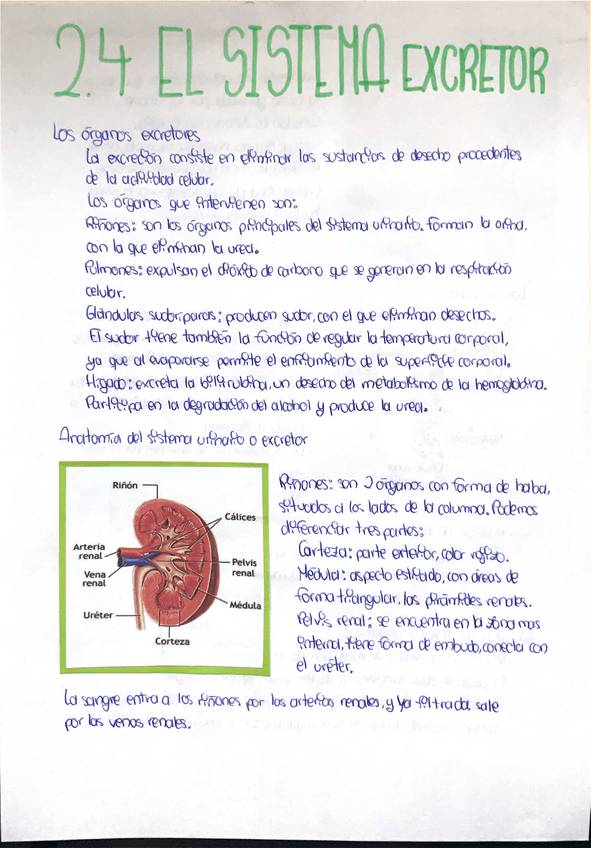 2.4 EL SISTEMA EXCRETOR
Los órganos excretores
La excreción consiste en eliminar las sustancias de desecho procedentes
de la actividad celular.
Los órganos que intervienen son:
Riñones: son los órganos principales del sistema urinario. Forman la orina,
con la que eliminan la urea.
Pulmones: expulsan el dióxido de carbono que se generan en la respiración
celular.
Glándulas sudoríparas: producen sudor, con el que eliminan desechos.
El sudor tiene también la función de regular la temperatura corporal,
ya que al evaporarse permite el enfriamiento de la superficie corporal.
Hígado: excreta la bilirrubina, un desecho del metabolismo de la hemoglobina.
Participa en la degradación del alcohol y produce la urea.
Anatomía del sistema urinario o excretor
Riñón
Cálices
Arteria
renal
Vena
renal
Pelvis
renal
Médula
Uréter
Corteza
Riñones: son 2 órganos con forma de haba,
situados a los lados de la columna. Podemos
diferenciar tres partes:
Corteza: parte exterior, color rojizo.
Médula: aspecto estriado, con áreas de
forma triangular, las pirámides renales.
Pelvis renal: se encuentra en la zona mas
interna, tiene forma de embudo, conecta con
el uréter.
La sangre entra a los riñones por las arterias renales, y ya filtrada, sale
por las venas renales.